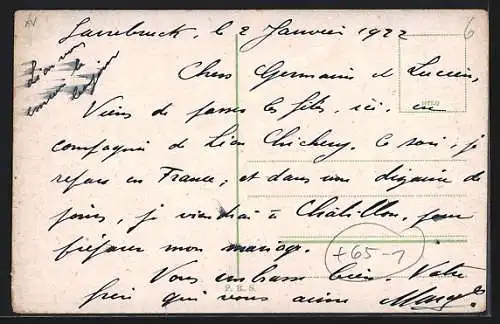 Sarrebruck, le 2 Janvier 1922
Chers Germaine et Lucien,
Viens de passer les fêtes, ici, en
compagnie de Léon Chichery. Ce soir, je
repars en France, et dans une dizaine de
jours, je viendrai à Châtillon, pour
préparer mon mariage.
Vous embrasse bien. Votre
frère qui vous aime
+65-1
6
P. R. S.